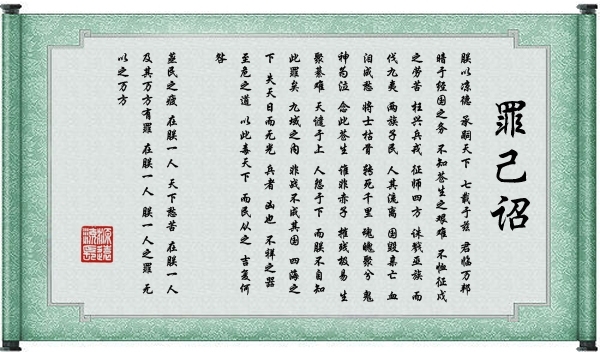 罪己诏
朕以凉德 承嗣天下 七载于兹 君临万邦
暗于经国之务 不知苍生之艰难 不恤征戍
之劳苦 枉兴兵戎 征师四方 诛戮亚族 而
伐九夷 两族子民 人其流离 国毁亡 血
泪成愁 将士枯骨 转死千里 魂魄聚兮 鬼
神泣 念此苍生 谁非赤子 摧残极易 生
聚綦难 天谴于上 人怨于下 而朕不自知
此罪矣 九域之内 非战不成其国 四海之
下 失天日而无光 兵者 凶也 不祥之器
至危之道 以此毒天下 而民从之 吉复何
咎
蒸民之疲 在朕一人 天下愁苦 在朕一人
及其万方有罪 在朕一人 朕一人之罪 无
以之万方